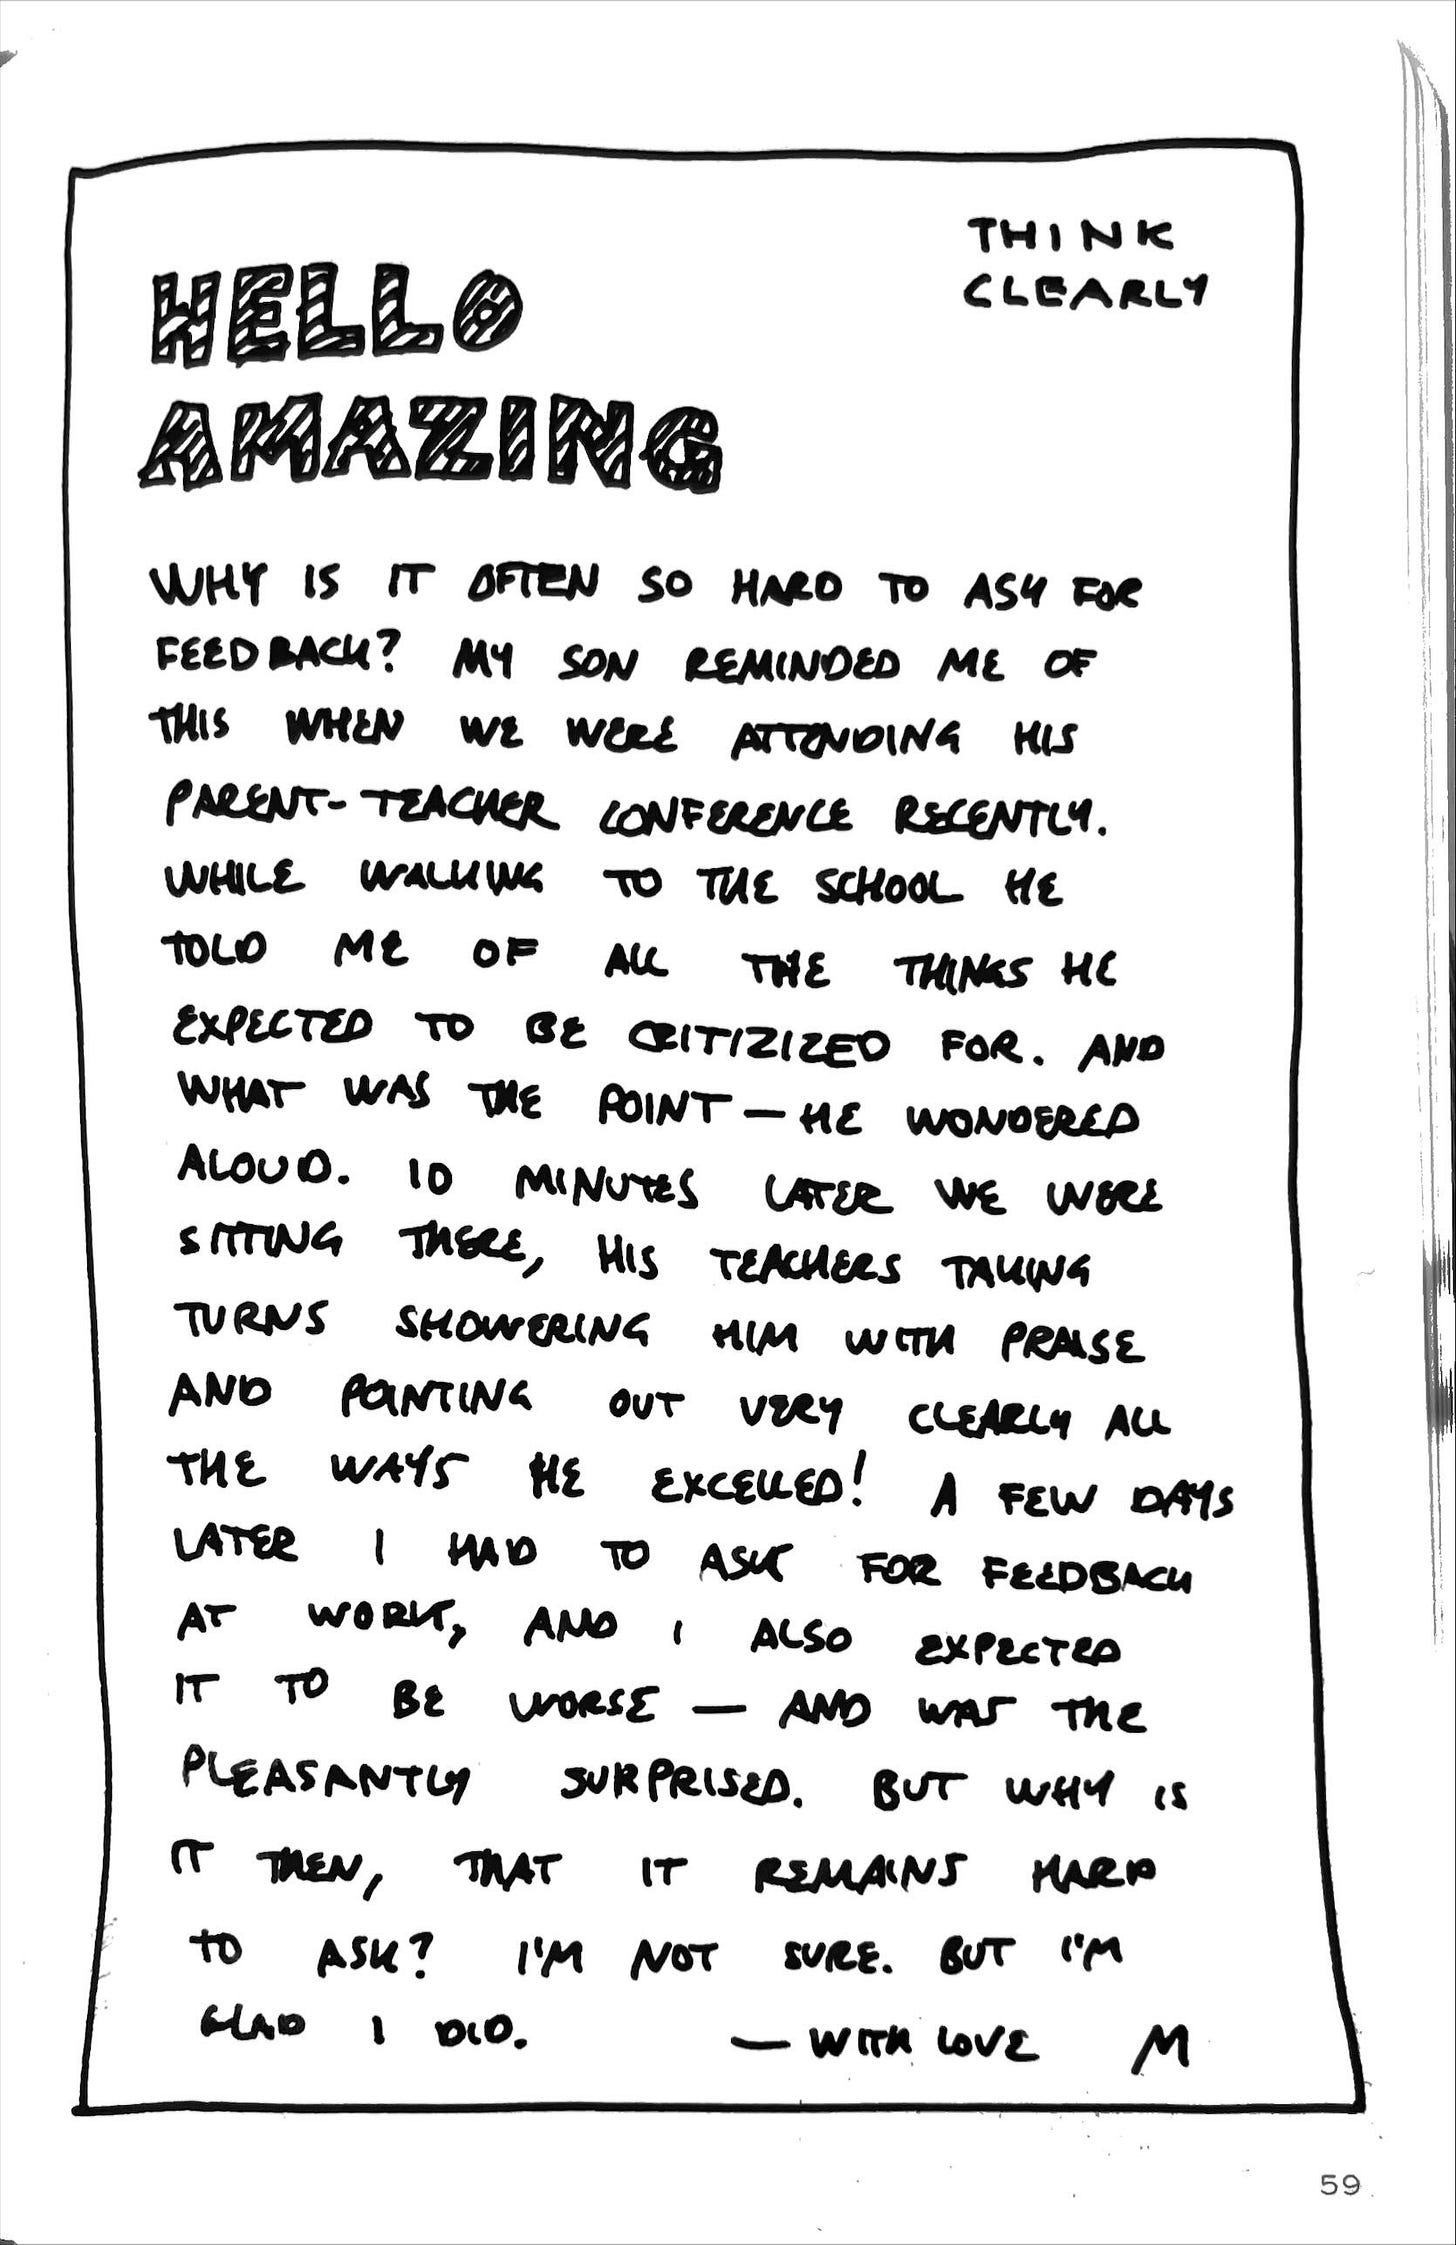 THINK
CLEARLY
HELLO
AMAZING
WHY IS IT OFTEN SO HARD TO ASK FOR
FEEDBACK? MY SON REMINDED ME OF
THIS WHEN WE WERE ATTENDING HIS
PARENT-TEACHER CONFERENCE RECENTLY.
WHILE WALKING TO THE SCHOOL HE
TOLD ME OF ALL THE THINGS HE
EXPECTED TO BE CRITIZIZED FOR. AND
WHAT WAS THE POINT — HE WONDERED
ALOUD. 10 MINUTES LATER WE WERE
SITTING THERE, HIS TEACHERS TAKING
TURNS SHOWERING HIM WITH PRAISE
AND POINTING OUT VERY CLEARLY ALL
THE WAYS HE EXCELLED! A FEW DAYS
LATER I HAD TO ASK FOR FEEDBACK
AT WORK, AND I ALSO EXPECTED
IT TO BE WORSE — AND WAS THE
PLEASANTLY SURPRISED. BUT WHY IS
IT THEN, THAT IT REMAINS HARD
TO ASK? I'M NOT SURE. BUT I'M
GLAD I DID. — WITH LOVE M
59